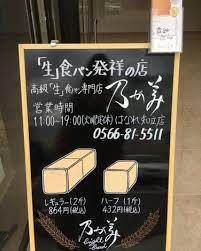 「生」食パン発祥の店
高級「生」食パン専門店 乃が美
営業時間
11:00~19:00(火曜定休)はなれ 知立店
0566-81-5511
レギュラー(2斤) ハーフ(1斤)
864円(税込) 432円(税込)
乃が美